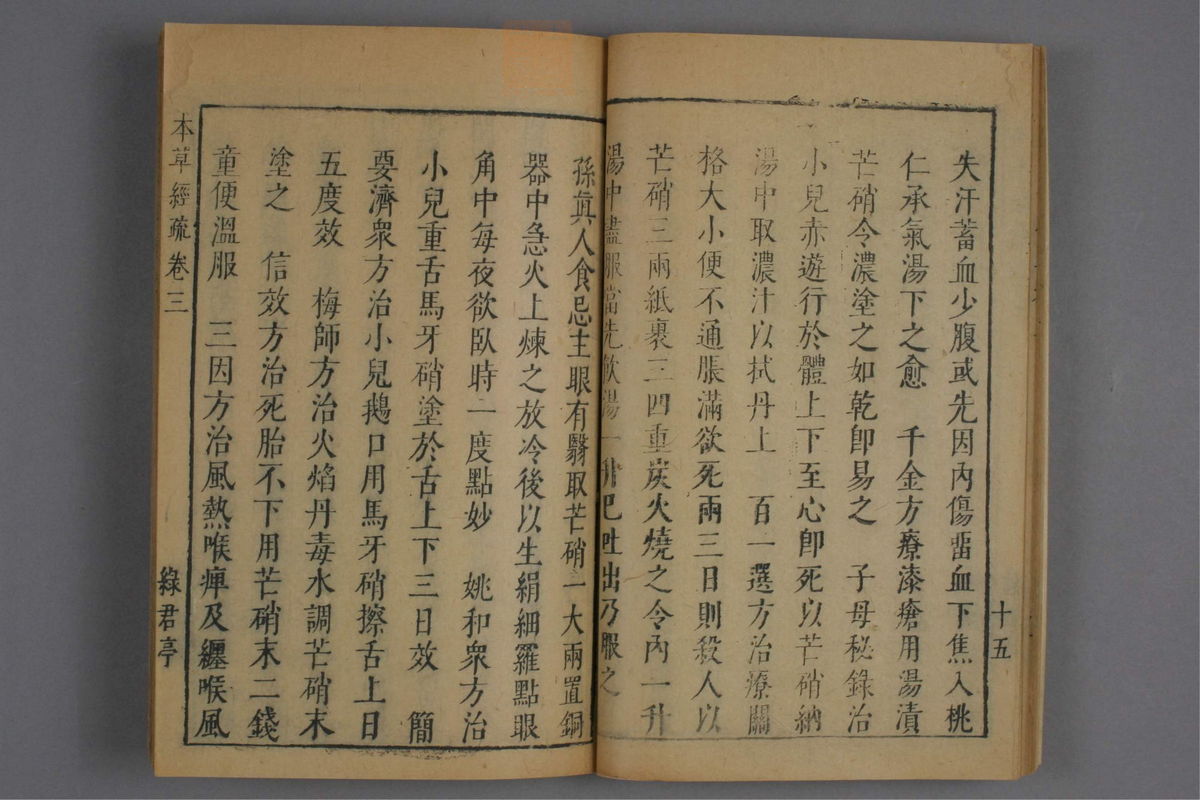 失汗蓄血少腹或先因內傷畱血下焦入桃
仁承氣湯下之愈　千金方療漆瘡用湯漬
芒硝令濃塗之如乾卽易之　子母秘錄治
小兒赤遊行於體上下至心卽死以芒硝納
湯中取濃汁以拭丹上　百一選方治療關
格大小便不通脹滿欲死兩三日則殺人以
芒硝三兩紙裹三四重炭火燒之令內一升
湯中盡服當先飲湯一升巳吐出乃服之
十五
孫眞人食忌主眼有翳取芒硝一大兩置銅
器中急火上煉之放冷後以生絹細羅點眼
角中每夜欲臥時一度點妙　姚和衆方治
小兒重舌馬牙硝塗於舌上下三日效　簡
要濟衆方治小兒鵝口用馬牙硝擦舌上日
五度效　梅師方治火焰丹毒水調芒硝末
塗之　信效方治死胎不下用芒硝末二錢
童便溫服　三因方治風熱喉痺及纏喉風
本草經疏　卷三
綠君亭